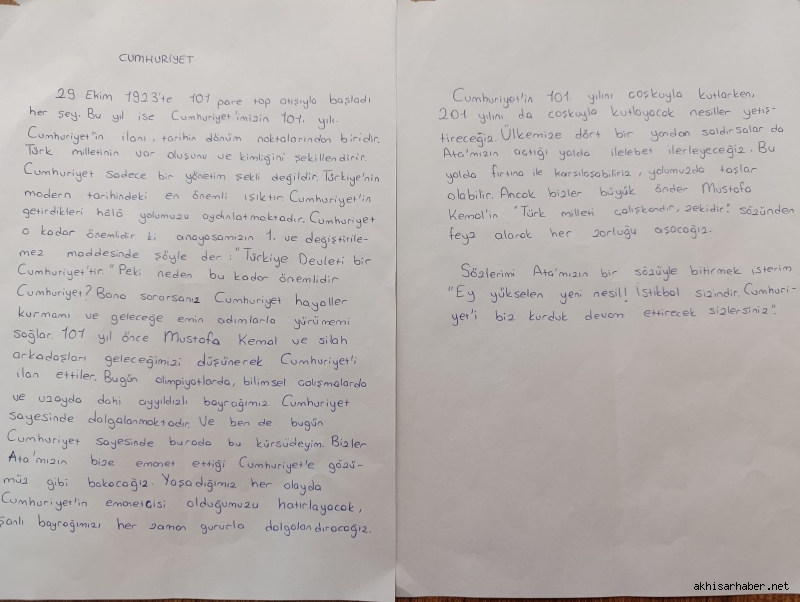 CUMHURİYET
29 Ekim 1923'te 101 pare top atışıyla başladı
her şey. Bu yıl ise Cumhuriyet'imizin 101. yılı.
Cumhuriyet'in ilanı, tarihin dönüm noktalarından biridir.
Türk milletinin var oluşunu ve kimliğini şekillendirir.
Cumhuriyet sadece bir yönetim şekli değildir. Türkiye'nin
modern tarihindeki en önemli ışıktır. Cumhuriyet'in
getirdikleri hâlâ yolumuzu aydınlatmaktadır. Cumhuriyet
o kadar önemlidir ki anayasamızın 1. ve değiştirile-
mez maddesinde şöyle der: "Türkiye Devleti bir
Cumhuriyet'tir." Peki neden bu kadar önemlidir
Cumhuriyet? Bana sorarsanız Cumhuriyet hayaller
kurmamı ve geleceğe emin adımlarla yürümemi
sağlar. 101 yıl önce Mustafa Kemal ve silah
arkadaşları geleceğimizi düşünerek Cumhuriyet'i
ilan ettiler. Bugün olimpiyatlarda, bilimsel çalışmalarda
ve uzayda dahi ayyıldızlı bayrağımız Cumhuriyet
sayesinde dalgalanmaktadır. Ve ben de bugün
Cumhuriyet sayesinde burada bu kürsüdeyim. Bizler
Ata'mızın bize emanet ettiği Cumhuriyet'e gözü-
müz gibi bakacağız. Yaşadığımız her olayda
Cumhuriyet'in emanetçisi olduğumuzu hatırlayacak,
şanlı bayrağımızı her zaman gururla dalgalandıracağız.
Cumhuriyet'in 101 yılını coşkuyla kutlarken,
201 yılını da coşkuyla kutlayacak nesiller yetiş-
tireceğiz. Ülkemize dört bir yandan saldırsalar da
Ata'mızın açtığı yolda ilelebet ilerleyeceğiz. Bu
yolda fırtına ile karşılaşabiliriz, yolumuzda taşlar
olabilir. Ancak bizler büyük önder Mustafa
Kemal'in "Türk milleti çalışkandır, zekidir." sözünden
feyz alarak her zorluğu aşacağız.
Sözlerimi Ata'mızın bir sözüyle bitirmek isterim
"Ey yükselen yeni nesil! İstikbal sizindir. Cumhuri-
yet'i biz kurduk devam ettirecek sizlersiniz".
akhisarhaber.net